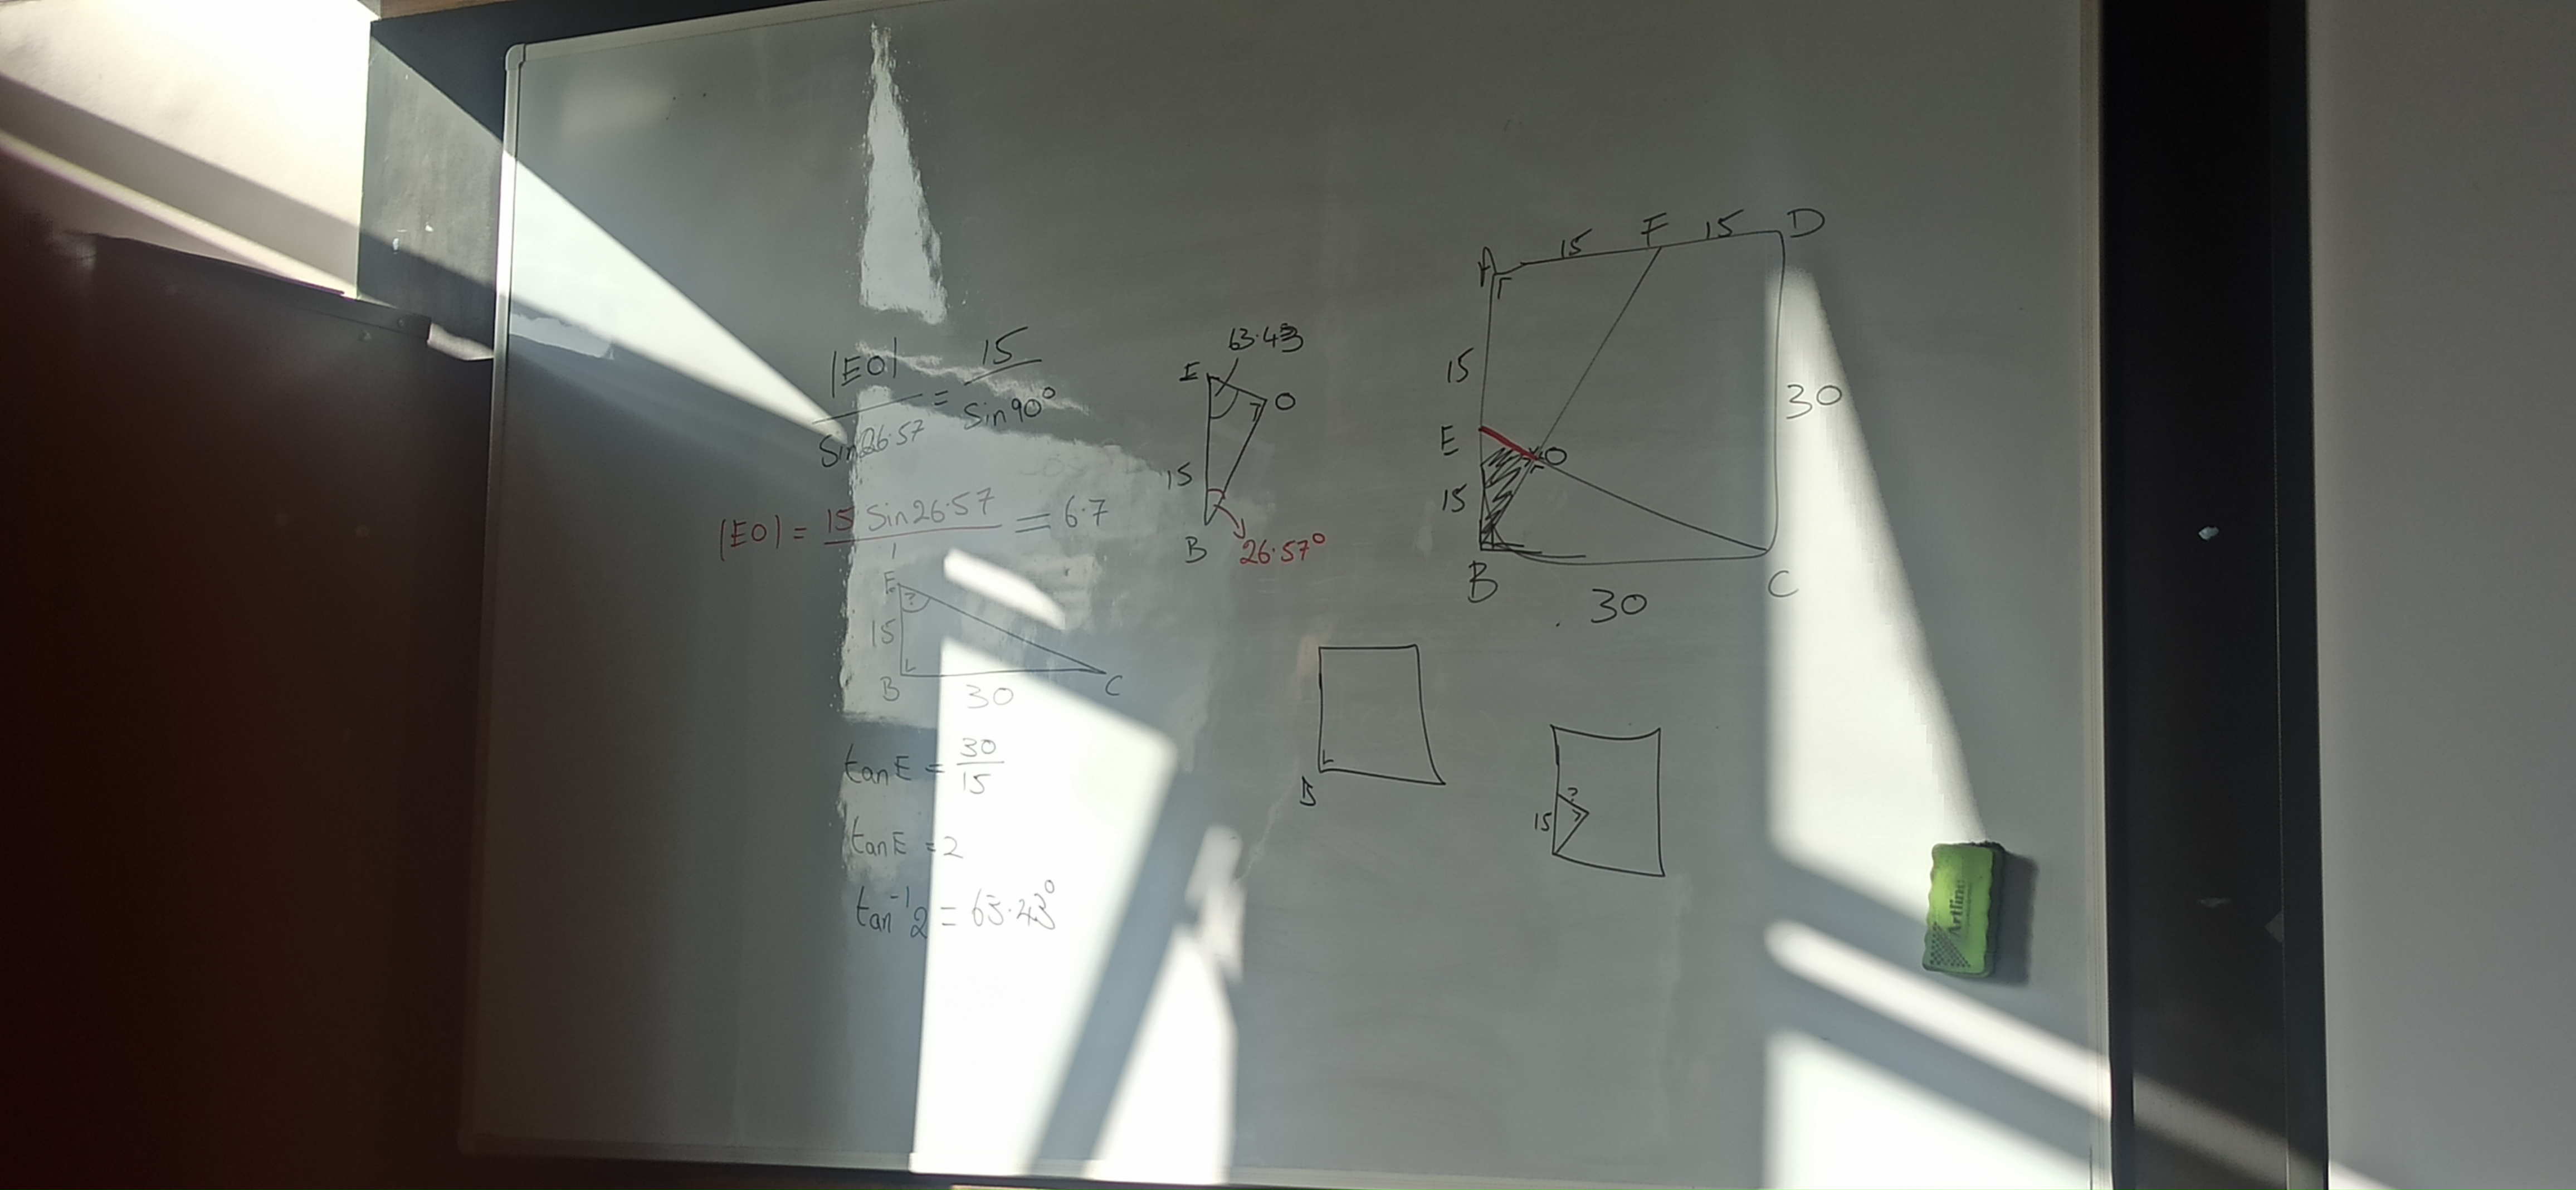 |EO| / Sin26.57 = 15 / Sin90°
|EO| = 15 Sin26.57 / 1 = 6.7
E
?
15
B
30
C
tanE = 30/15
tanE = 2
tan⁻¹2 = 63.43°
63.43
E
O
15
B
26.57°
A
15
F
15
D
15
30
E
O
15
B
C
30
B
?
15
Artline